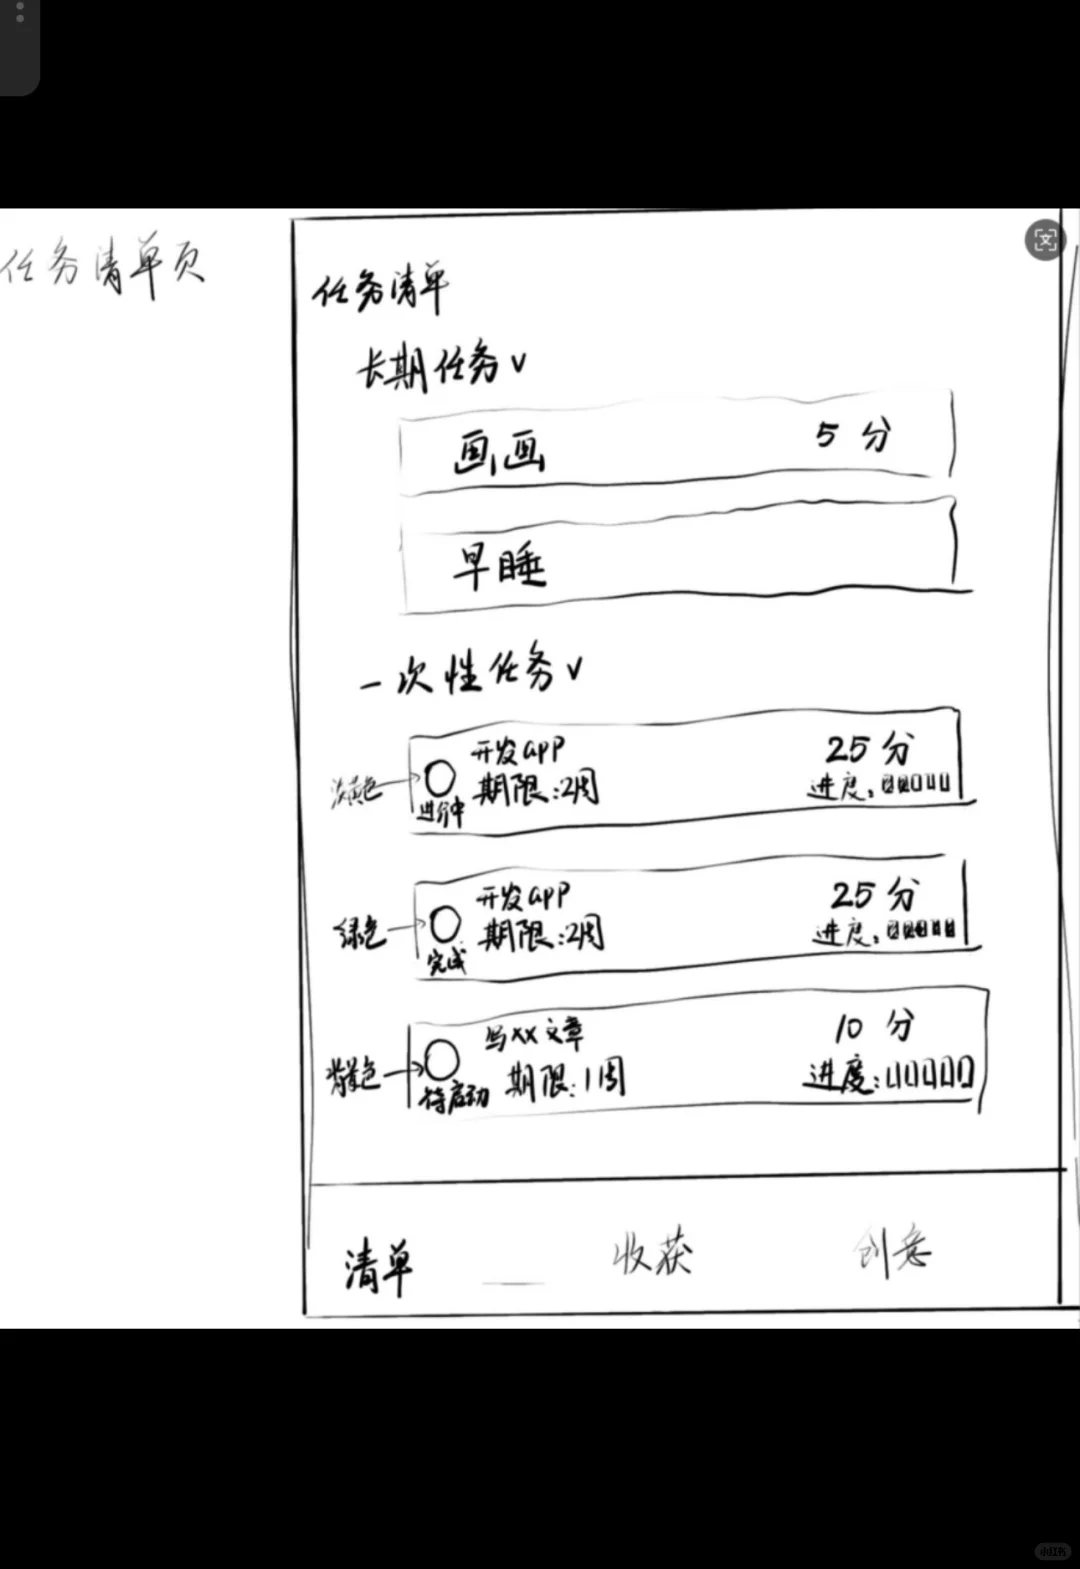 任务清单页
任务清单
长期任务 ∨
画画 5 分
早睡
一次性任务 ∨
开发app 25 分
淡黄色 期限:2周 进度:
进行中
开发app 25 分
绿色 期限:2周 进度:
完成
写xx文章 10 分
期限:1周 进度:
待启动
清单 收获 创意
小红书